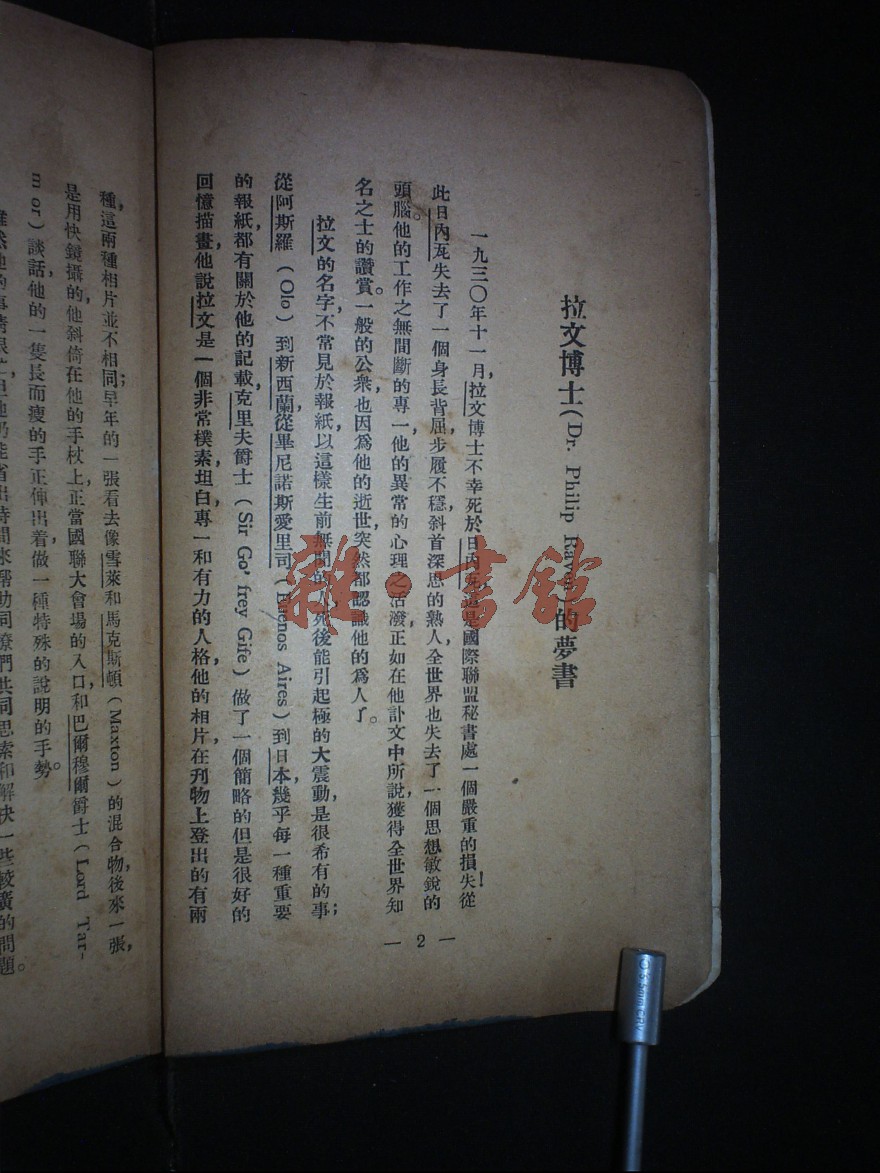 拉文博士(Dr. Philip Raven)的夢書
一九三〇年十一月,拉文博士不幸死於日內瓦,這是國際聯盟秘書處一個嚴重的損失!從
此日內瓦失去了一個身長背屈,步履不穩,斜首深思的熟人,全世界也失去了一個思想敏銳的
頭腦。他的工作之無間斷的專一,他的異常的心理之活潑,正如在他訃文中所說,獲得全世界知
名之士的讚賞。一般的公衆也因爲他的逝世,突然都認識他的爲人了。
拉文的名字,不常見於報紙,以這樣生前無聞的人,死後能引起極的大震動,是很希有的事;
從阿斯羅(Olo)到新西蘭,從畢尼諾斯愛里司(Buenos Aires)到日本,幾乎每一種重要
的報紙,都有關於他的記載,克里夫爵士(Sir Go'frey Gife)做了一個簡略的但是很好的
回憶描畫,他說拉文是一個非常樸素,坦白,專一和有力的人格,他的相片,在刋物上登出的有兩
— 2 —
種,這兩種相片並不相同;早年的一張看去像雪萊和馬克斯頓(Maxton)的混合物,後來一張,
是用快鏡攝的,他斜倚在他的手杖上,正當國聯大會場的入口,和巴爾穆爾爵士(Lord Tar-
mor)談話,他的一隻長而瘦的手正伸出着做一種特殊的說明的手勢。
時間來帮助同寮們共同思索和解决一些較廣的問題。
雜·書館